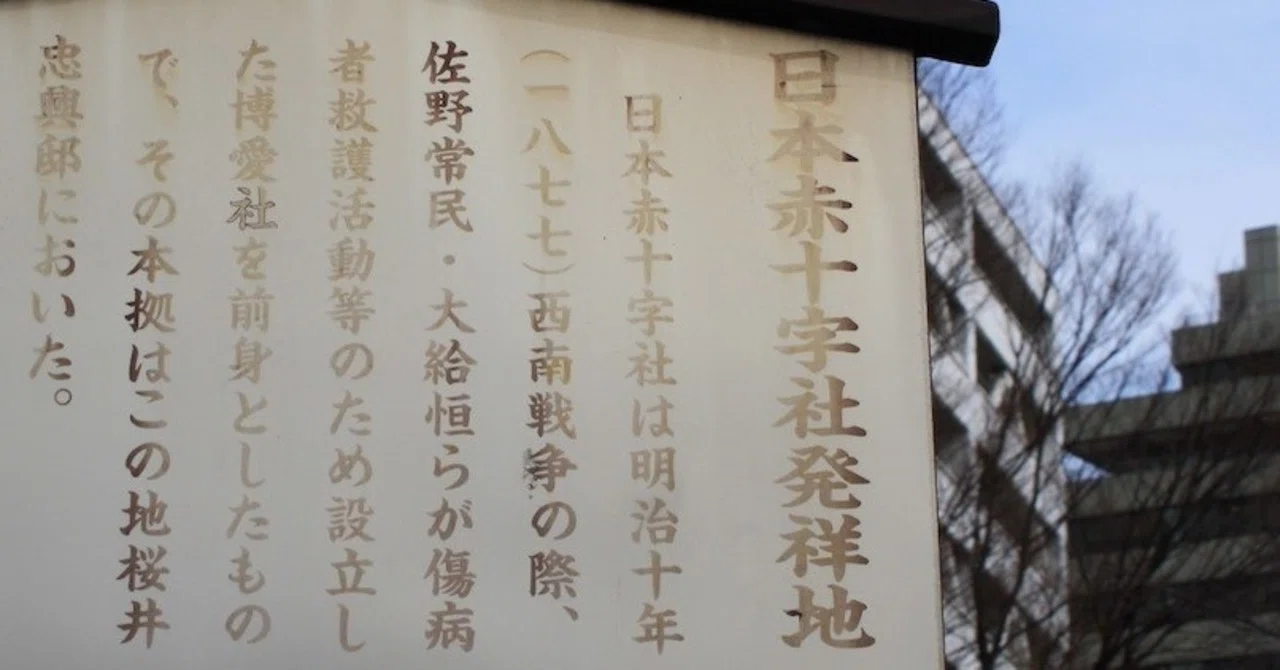 日本赤十字社発祥地
日本赤十字社は明治十年
(一八七七)西南戦争の際、
佐野常民・大給恒らが傷病
者救護活動等のため設立し
た博愛社を前身としたもの
で、その本拠はこの地桜井
忠興邸においた。